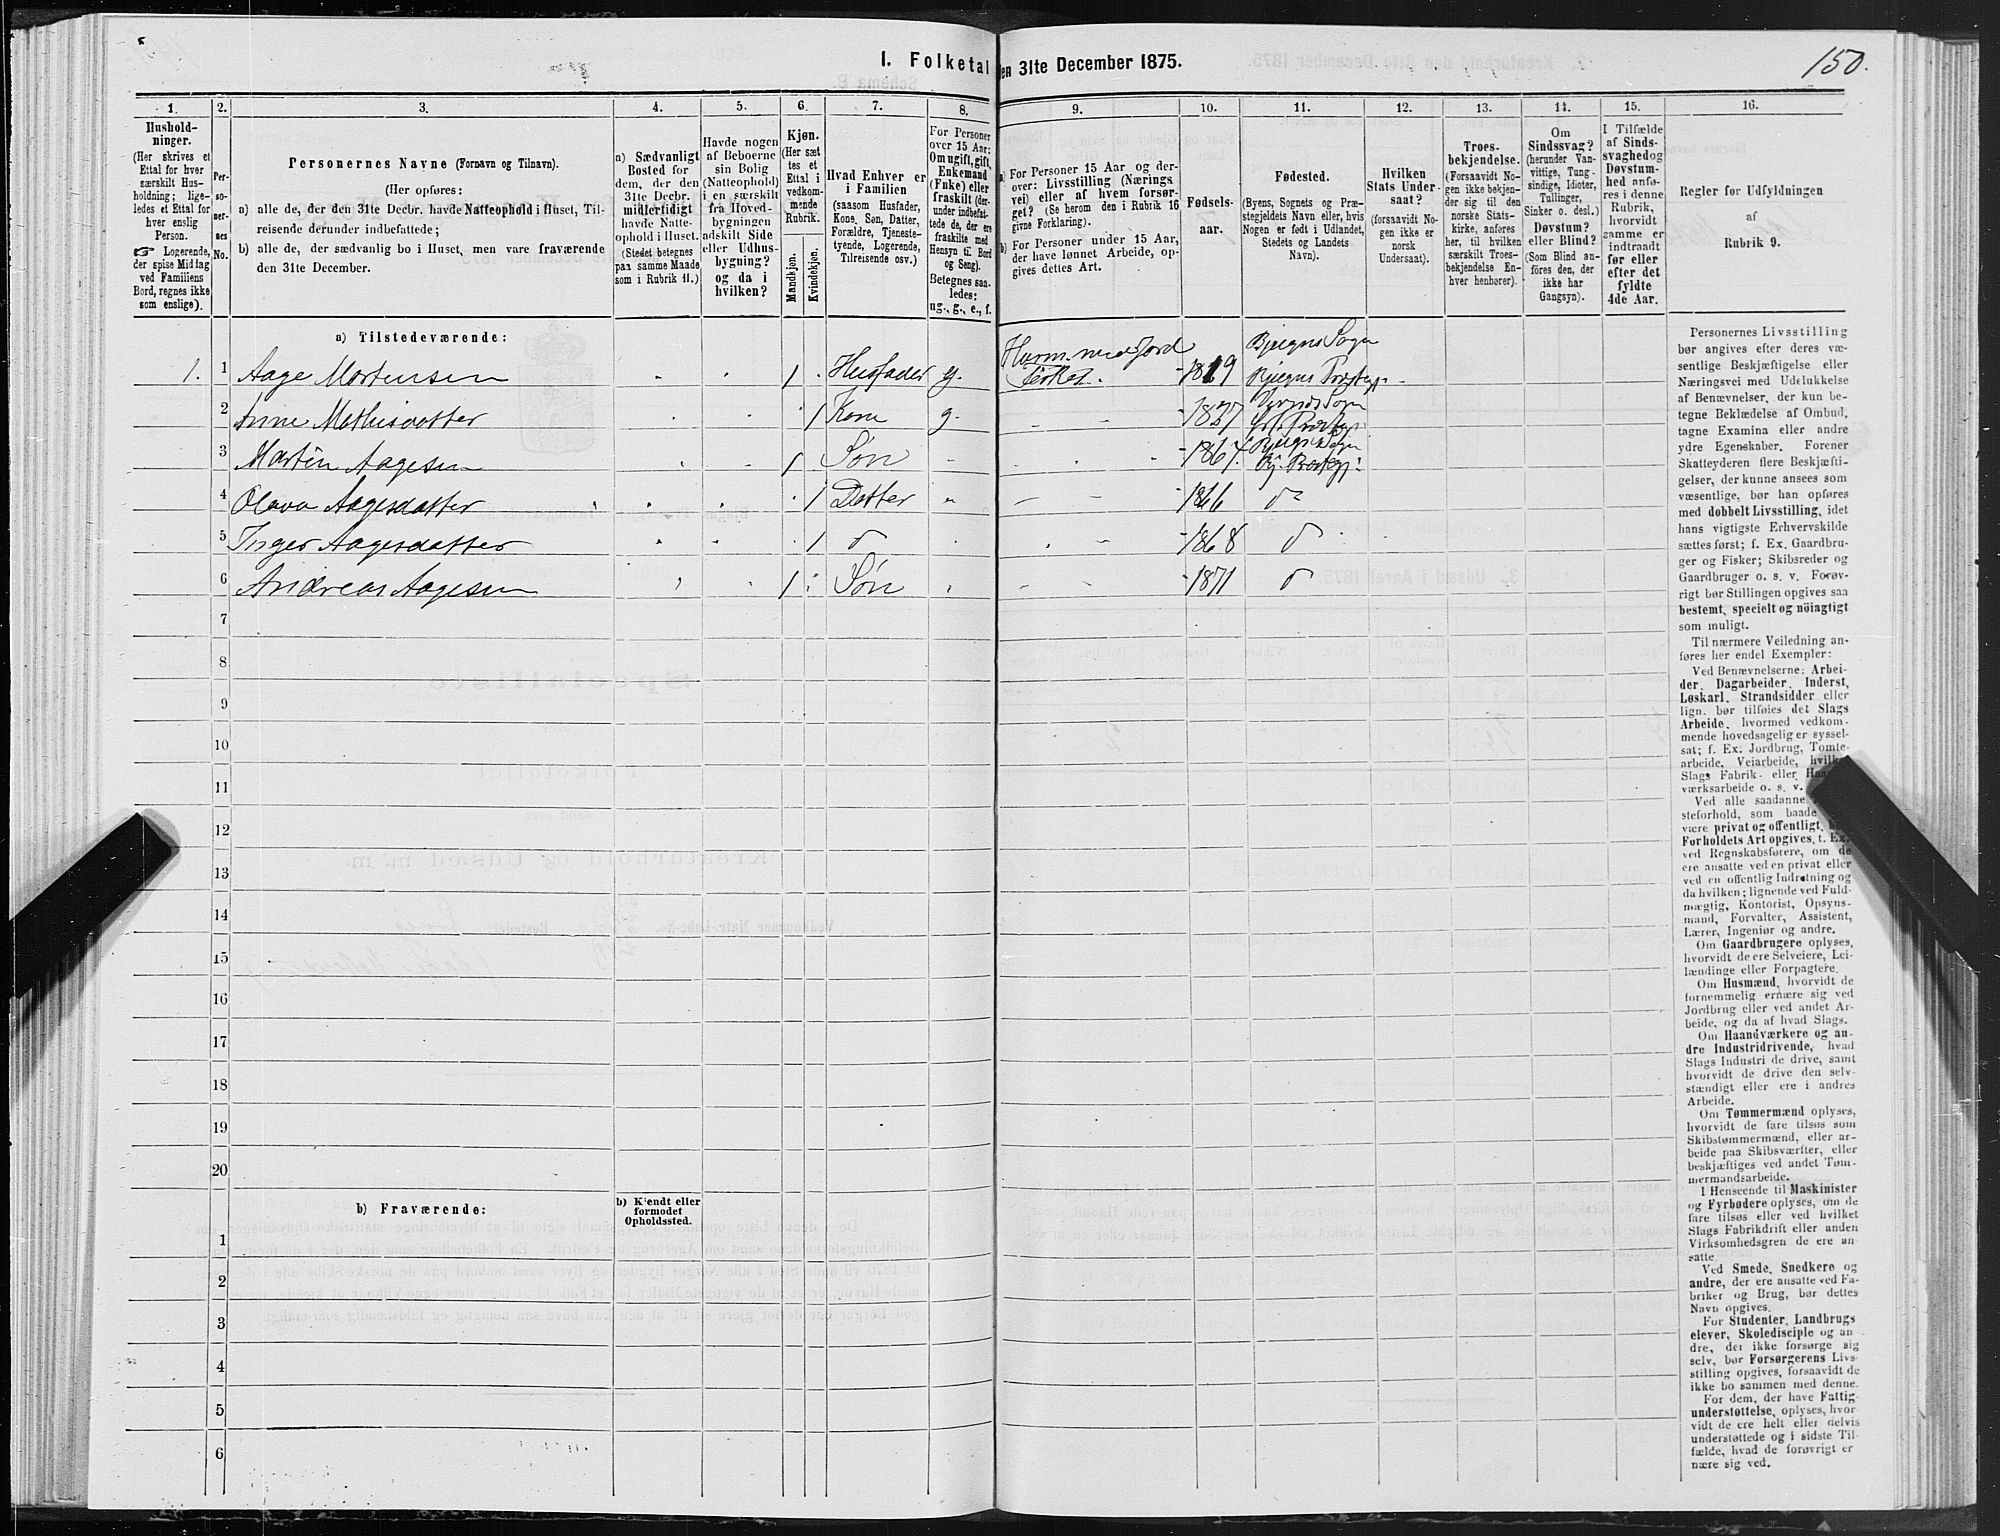 150.
I. Folketal
en 31te December 1875.
1.
2.
3.
4.
5.
6.
7.
8.
9.
10.
11.
12.
13.
14.
15.
16.
Hushold-
ninger.
(Her skrives et
Ettal for hver
særskilt Hus-
holdning; lige-
ledes et Ettal for
hver enslig
Person.
☞ Logerende,
der spise Middag
ved Familiens
Bord, regnes ikke
som enslige).
Per-
so-
ner-
nes
No.
Personernes Navne (Fornavn og Tilnavn).
(Her opføres:
a) alle de, der den 31te Decbr. havde Natteophold i Huset, Til-
reisende derunder indbefattede;
b) alle de, der sædvanlig bo i Huset, men vare fraværende
den 31te December.
a) Sædvanligt
Bosted for
dem, der den
31te Decbr.
midlertidigt
havde Natte-
ophold i Huset.
(Stedet betegnes
paa samme Maade
som i Rubrik 11.)
Havde nogen
af Beboerne
sin Bolig
(Natteophold)
i en særskilt
fra Hoved-
bygningen
adskilt Side
eller Udhus-
bygning?
og da i
hvilken?
Kjøn.
(Her sæt
tes et
Ettal i
vedkom-
mende
Rubrik.
Mandkjøn.
Kvindekjøn.
Hvad Enhver er
i Familien
(saasom Husfader,
Kone, Søn, Datter,
Forældre, Tjeneste-
tyende, Logerende,
Tilreisende osv.)
For Personer
over 15 Aar:
Om ugift, gift,
Enkemand
(Enke) eller
fraskilt (der-
under indbefat-
tede de, der ere
fraskilte med
Hensyn til Bord
og Seng).
Betegnes saa-
ledes:
ug., g., e., f.
a) For Personer 15 Aar og der-
over: Livsstilling (Nærings
vei) eller af hvem forsør-
get? (Se herom den i Rubrik 16
givne Forklaring).
b) For Personer under 15 Aar,
der have lønnet Arbeide, op-
gives dettes Art.
Fødsels-
aar.
Fødested.
(Byens, Sognets og Præ-
stegjeldets Navn eller, hvis
Nogen er født i Udlandet,
Stedets og Landets
Navn).
Hvilken
Stats Under-
saat?
(forsaavidt No-
gen ikke er
norsk
Undersaat).
Troes-
bekjendelse.
(Forsaavidt No-
gen ikke bekjen-
der sig til den
norske Stats-
kirke, anføres
her, til hvilken
særskilt Troes-
bekjendelse En-
hver henhører).
Om
Sindssvag?
(herunder Van-
vittige, Tung-
sindige, Idioter,
Tullinger,
Sinker o. desl.)
Døvstum?
eller Blind?
(Som Blind an-
føres den, der
ikke har
Gangsyn).
I Tilfælde
af Sinds-
svaghed og
Døvstum-
hed anfø-
res i denne
Rubrik,
hvorvidt
samme er
indtraadt
før eller
efter det
fyldte
4de Aar.
Regler for Udfyldningen
af
Rubrik 9.
a) Tilstedeværende:
1. 1 Aage Mortensen 1 Husfader g. 1819 Bjugns Sogn
2 Anne Mathisdatter 1 Kone g. 1827
3 Morten Aagesen 1 Søn 1864
4 Olava Aagesdatter 1 Datter 1866 do
5 Inger Aagesdatter 1 do 1868 do
6 Andreas Aagesen 1 Søn 1871 do
7
8
9
10
11
12
13
14
15
16
17
18
19
20
b) Fraværende:
b) Kjendt eller
formodet
Opholdssted.
1
2
3
4
5
6
Personernes Livsstilling
bør angives efter deres væ-
sentlige Beskjæftigelse eller
Næringsvei med Udelukkelse
af Benævnelser, der kun be-
tegne Beklædelse af Ombud,
tagne Examina eller andre
ydre Egenskaber. Forener
Skatteyderen flere Beskjæfti-
gelser, der kunne ansees som
væsentlige, bør han opføres
med dobbelt Livsstilling, idet
hans vigtigste Erhvervskilde
sættes først; f. Ex. Gaardbru-
ger og Fisker; Skibsreder og
Gaardbruger o. s. v. Forøv-
rigt bør Stillingen opgives saa
bestemt, specielt og nöiagtigt
som muligt.
Til nærmere Veiledning an-
føres her endel Exempler:
Ved Benævnelserne: Arbei-
der, Dagarbeider, Inderst,
Løskarl, Strandsidder eller
lign. bør tilføies det Slags
Arbeide, hvormed vedkom-
mende hovedsagelig er syssel-
sat; f. Ex. Jordbrug, Tomte-
arbeide, Veiarbeide, hvilket
Slags Fabrik- eller
værksarbeide o. s. v.
Ved alle saadanne
steforhold, som baade
være privat og offentligt,
Forholdets Art opgives, t. Ex.
ved Regnskabsførere, om de
ere ansatte ved en privat eller
ved en offentlig Indretning og
da hvilken; lignende ved Fuld-
mægtig, Kontorist, Opsyns-
mand, Forvalter, Assistent,
Lærer, Ingeniør og andre.
Om Gaardbrugere oplyses,
hvorvidt de ere Selveiere, Lei-
lændinge eller Forpagtere.
Om Husmænd, hvorvidt de
fornemmelig ernære sig ved
Jordbrug eller ved andet Ar-
beide, og da af hvad Slags.
Om Haandværkere og an-
dre Industridrivende, hvad
Slags Industri de drive, samt
hvorvidt de drive den selv-
stændigt eller ere i andres
Arbeide.
Om Tømmermænd oplyses,
hvorvidt de fare tilsøs som
Skibstømmermænd, eller ar-
beide paa Skibsværfter, eller
beskjæftiges ved andet Tøm-
mermandsarbeide.
I Henseende til Maskinister
og Fyrbødere oplyses, om de
fare tilsøs eller ved hvilket
Slags Fabrikdrift eller anden
Virksomhedsgren de ere an-
satte.
Ved Smede, Snedkere og
andre, der ere ansatte ved Fa-
briker og Brug, bør dettes
Navn opgives.
For Studenter, Landbrugs
elever, Skoledisciple og an-
dre, der ikke forsørge sig
selv, bør Forsørgerens Livs-
stilling opgives, forsaavidt de
ikke bo sammen med denne.
For dem, der have Fattig-
understøttelse, oplyses, hvor-
vidt de ere helt eller delvis
understøttede og i sidste Til-
fælde, hvad de forøvrigt er
nære sig ved.